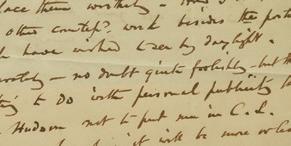 place them worthily -
other countef? work besides the port
have wished to see by day light.
- no doubt quite foolishly - but th
to do with personal publicity
Hudson not to put me in C.L.
it will be more or le